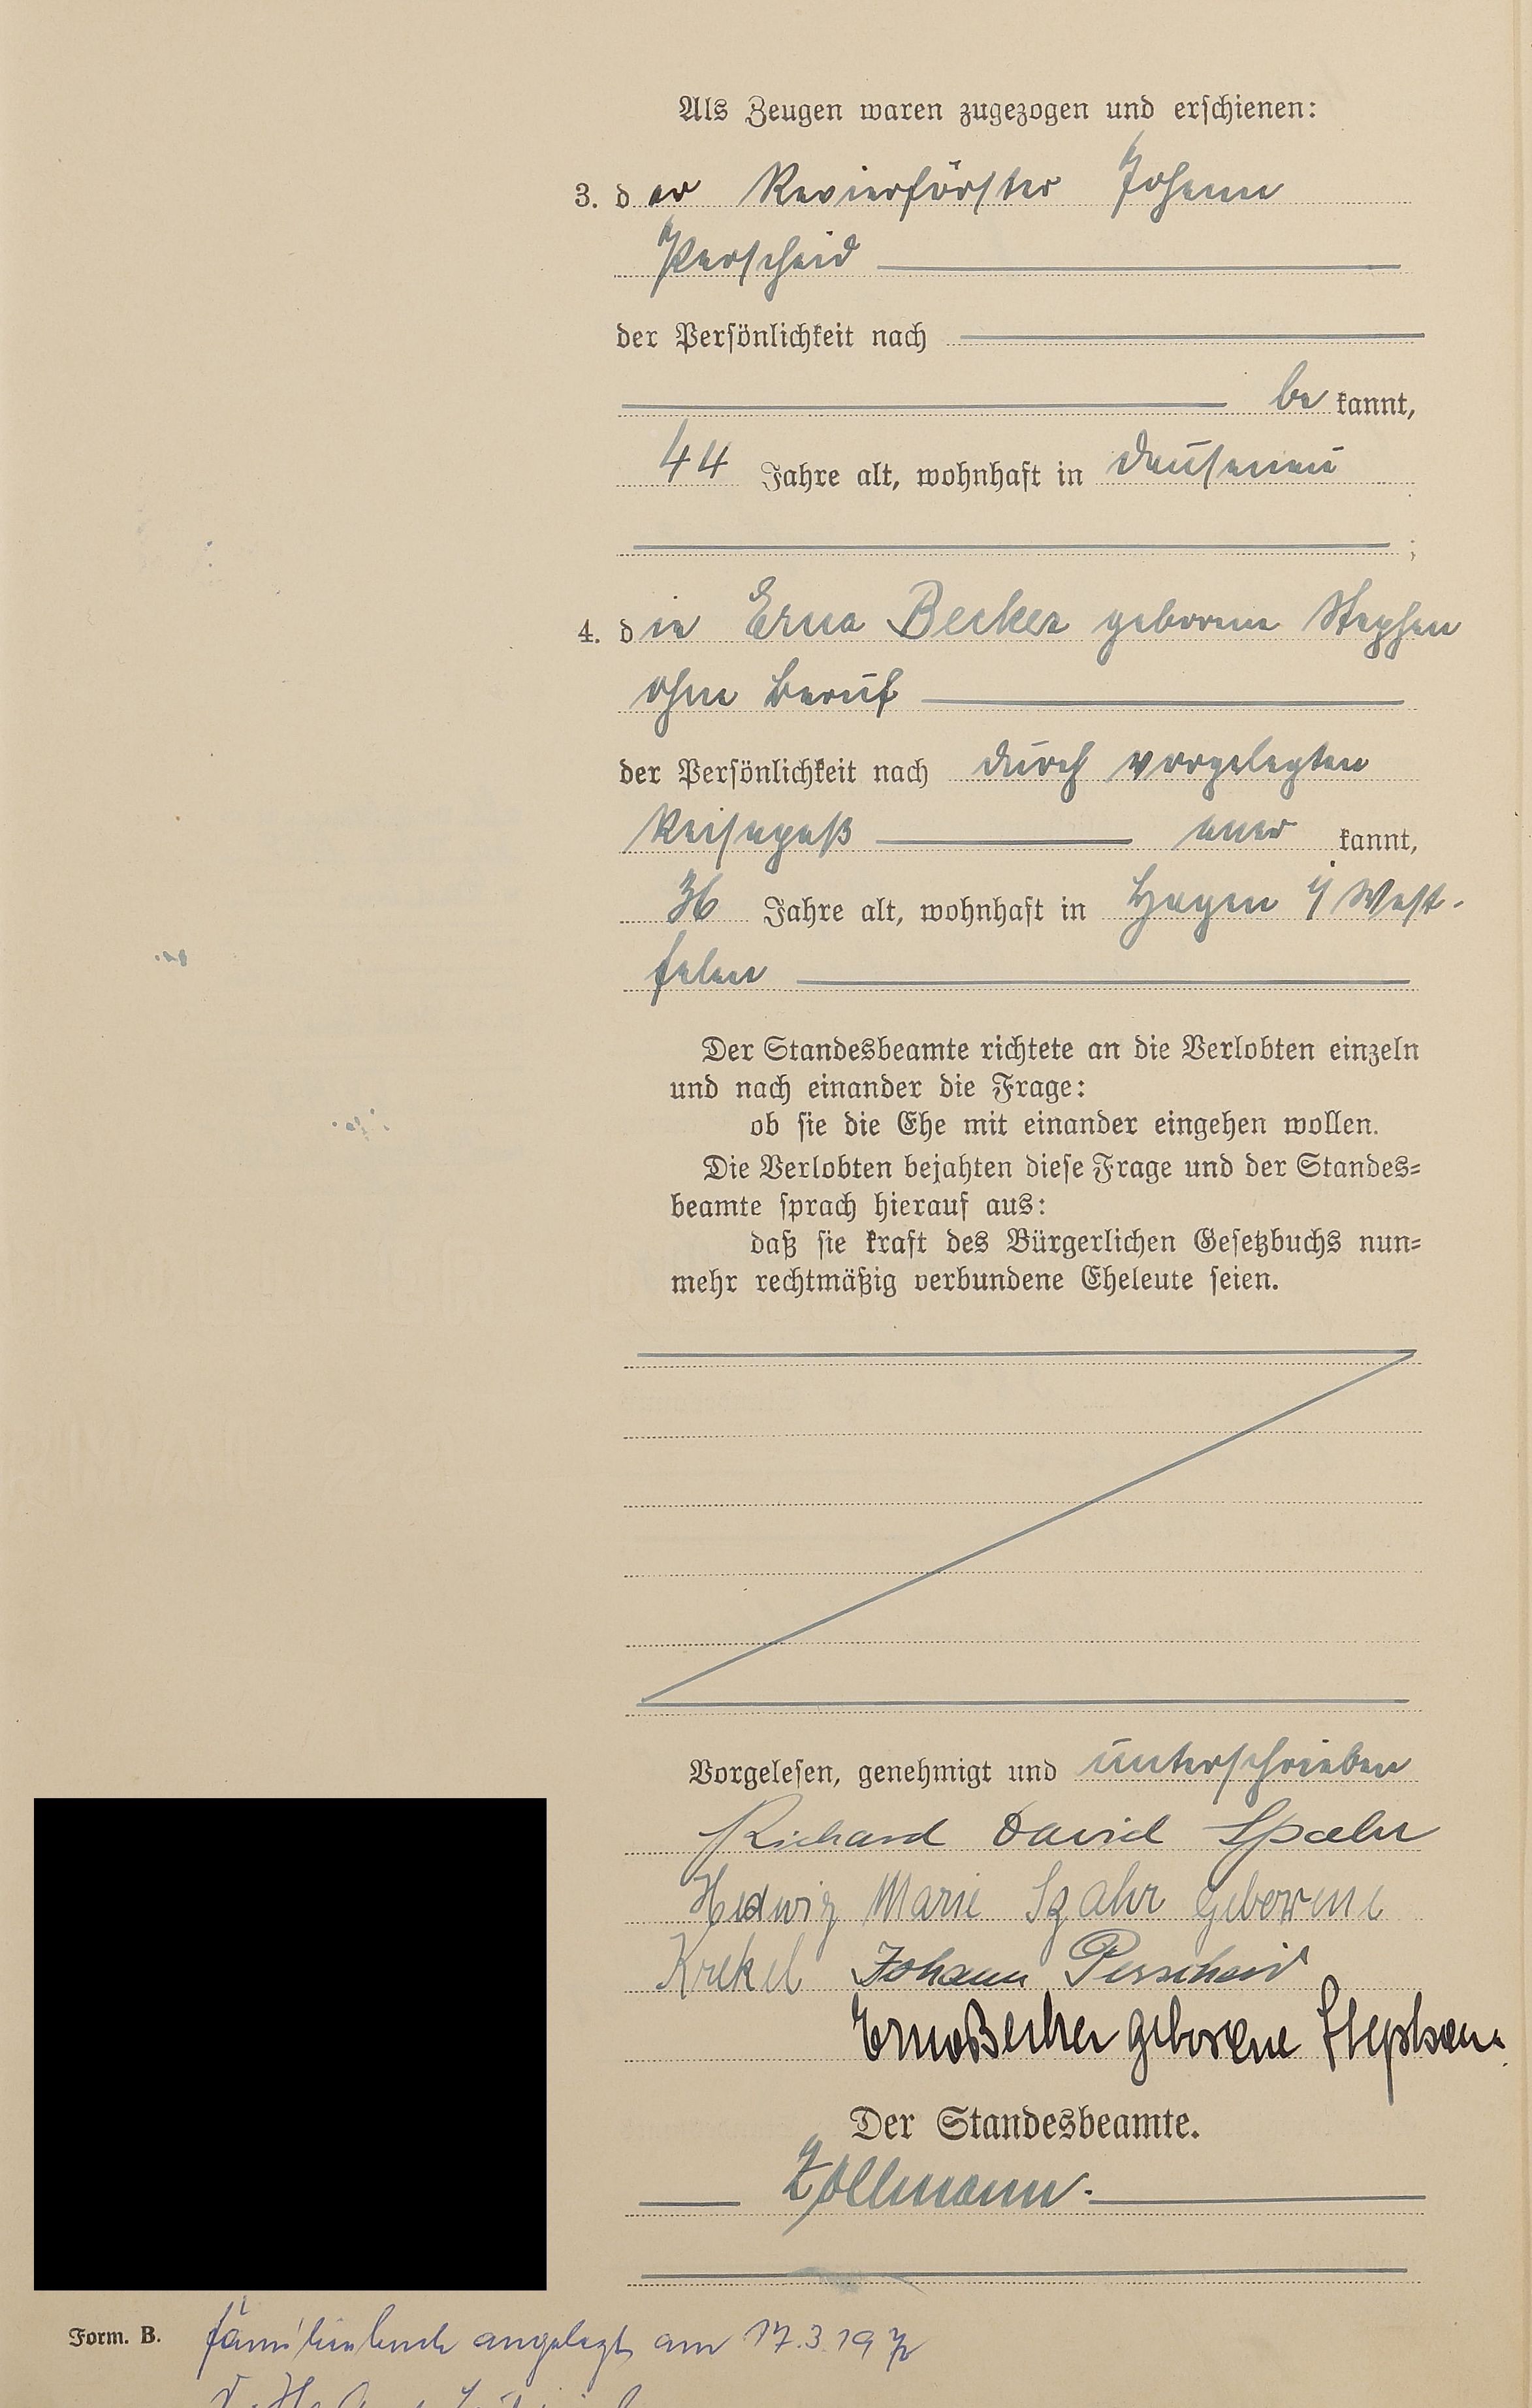 Als Zeugen waren zugezogen und erschienen:
3. der Revierförster Johann
Perscheid
der Persönlichkeit nach
be kannt,
44 Jahre alt, wohnhaft in Dausenau
;
4. die Erna Becker geborene Stephan
ohne Beruf
der Persönlichkeit nach durch vorgelegten
Reisepaß aner kannt,
36 Jahre alt, wohnhaft in Hagen i/ West-
falen
Der Standesbeamte richtete an die Verlobten einzeln
und nach einander die Frage:
ob sie die Ehe mit einander eingehen wollen.
Die Verlobten bejahten diese Frage und der Standes-
beamte sprach hierauf aus:
daß sie kraft des Bürgerlichen Gesetzbuchs nun-
mehr rechtmäßig verbundene Eheleute seien.
Vorgelesen, genehmigt und unterschrieben
Richard David Spahr
Hedwig Marie Spahr geborene
Krekel Johann Perscheid
Erna Becker geborene Stephan.
Der Standesbeamte.
Zollmann.
Form. B. Familienbuch angelegt am 17.3.19